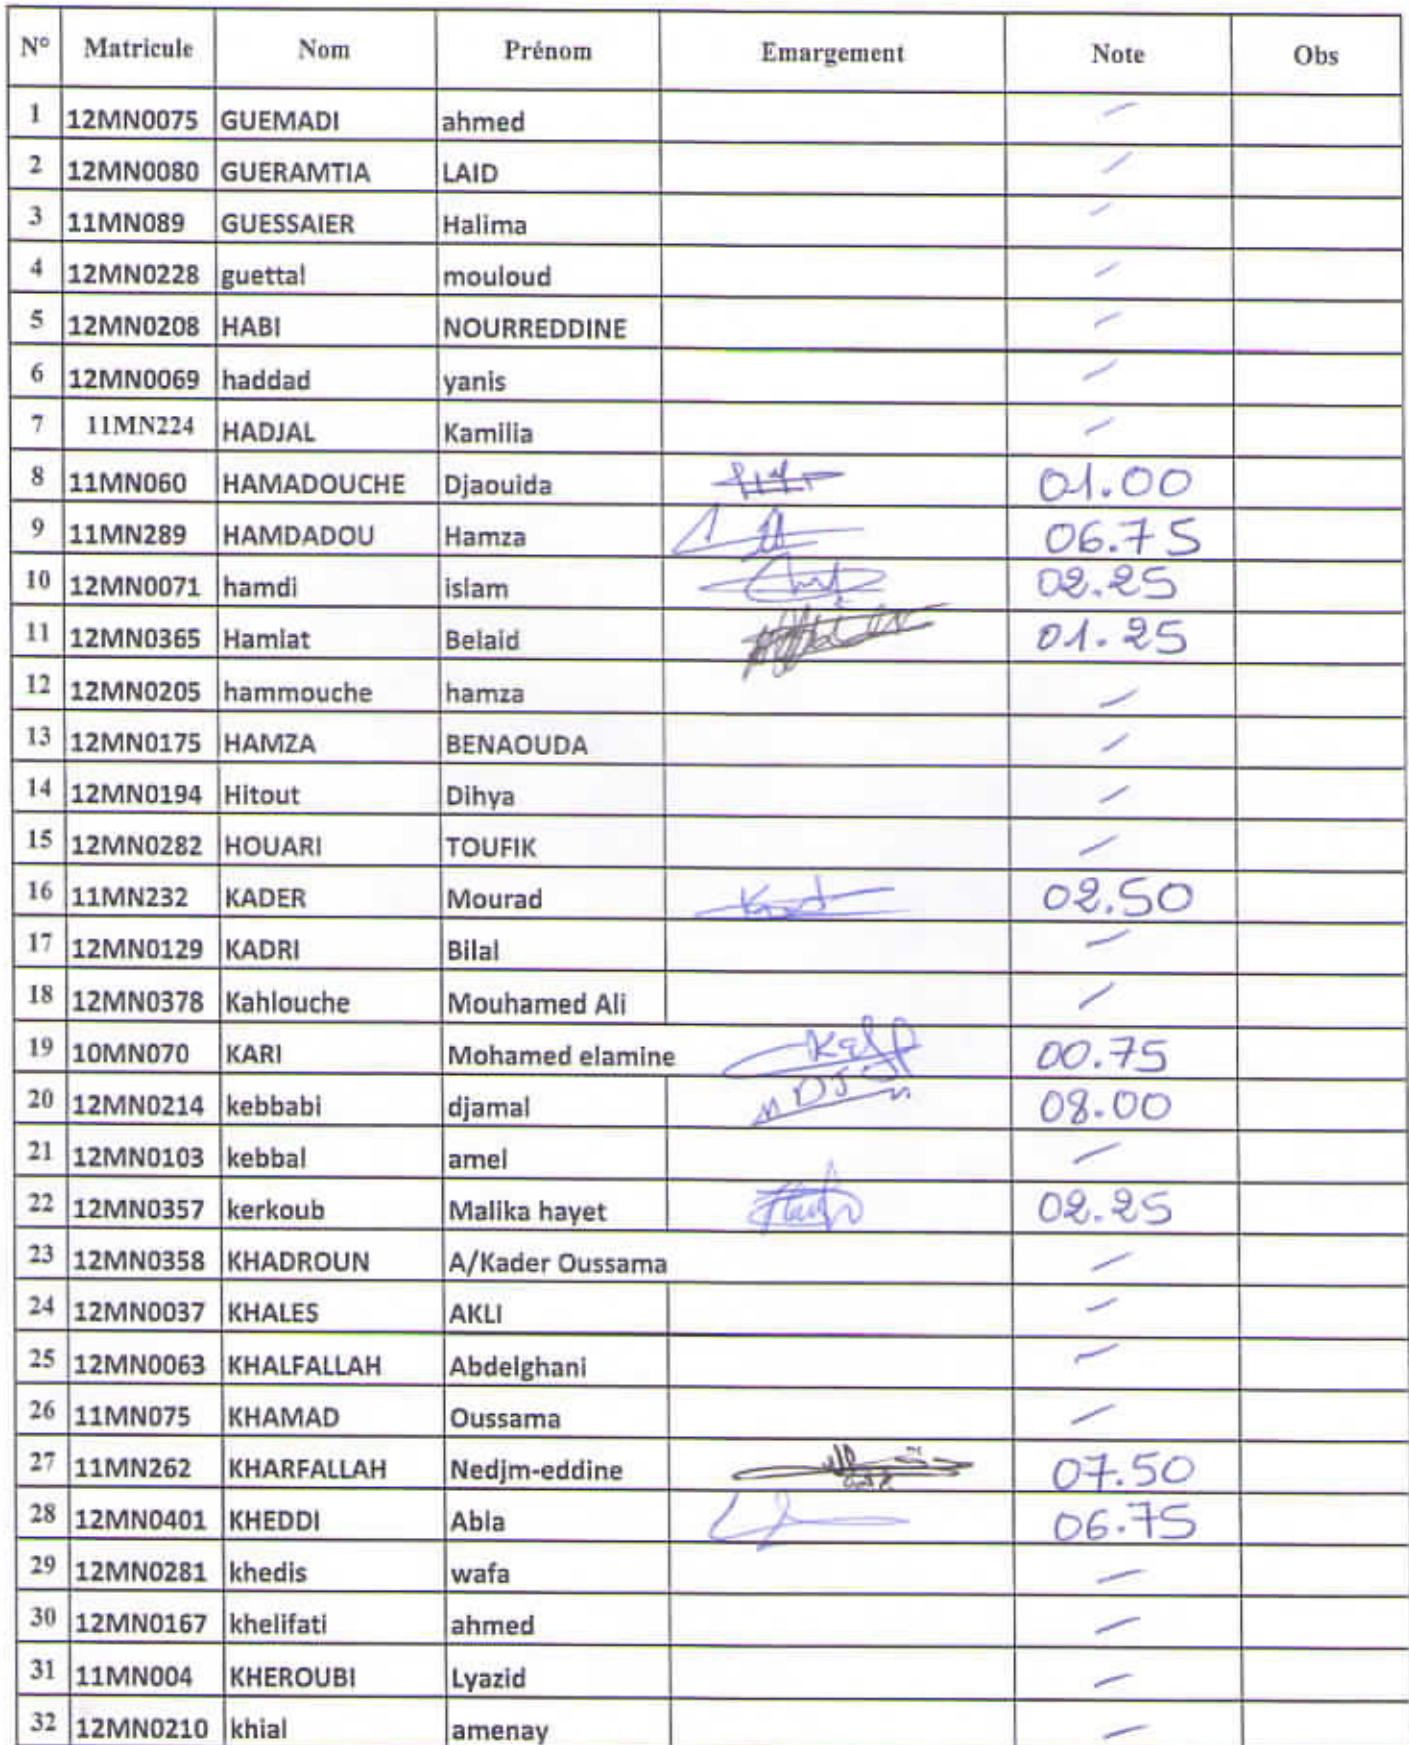 N° Matricule Nom Prénom Emargement Note Obs
1 12MN0075 GUEMADI ahmed —
2 12MN0080 GUERAMTIA LAID —
3 11MN089 GUESSAIER Halima —
4 12MN0228 guettal mouloud —
5 12MN0208 HABI NOURREDDINE —
6 12MN0069 haddad yanis —
7 11MN224 HADJAL Kamilia —
8 11MN060 HAMADOUCHE Djaouida 01.00
9 11MN289 HAMDADOU Hamza 06.75
10 12MN0071 hamdi islam 02.25
11 12MN0365 Hamlat Belaid 01.25
12 12MN0205 hammouche hamza —
13 12MN0175 HAMZA BENAOUDA —
14 12MN0194 Hitout Dihya —
15 12MN0282 HOUARI TOUFIK —
16 11MN232 KADER Mourad 02.50
17 12MN0129 KADRI Bilal —
18 12MN0378 Kahlouche Mouhamed Ali —
19 10MN070 KARI Mohamed elamine 00.75
20 12MN0214 kebbabi djamal 08.00
21 12MN0103 kebbal amel —
22 12MN0357 kerkoub Malika hayet 02.25
23 12MN0358 KHADROUN A/Kader Oussama —
24 12MN0037 KHALES AKLI —
25 12MN0063 KHALFALLAH Abdelghani —
26 11MN075 KHAMAD Oussama —
27 11MN262 KHARFALLAH Nedjm-eddine 07.50
28 12MN0401 KHEDDI Abla 06.75
29 12MN0281 khedis wafa —
30 12MN0167 khelifati ahmed —
31 11MN004 KHEROUBI Lyazid —
32 12MN0210 khial amenay —